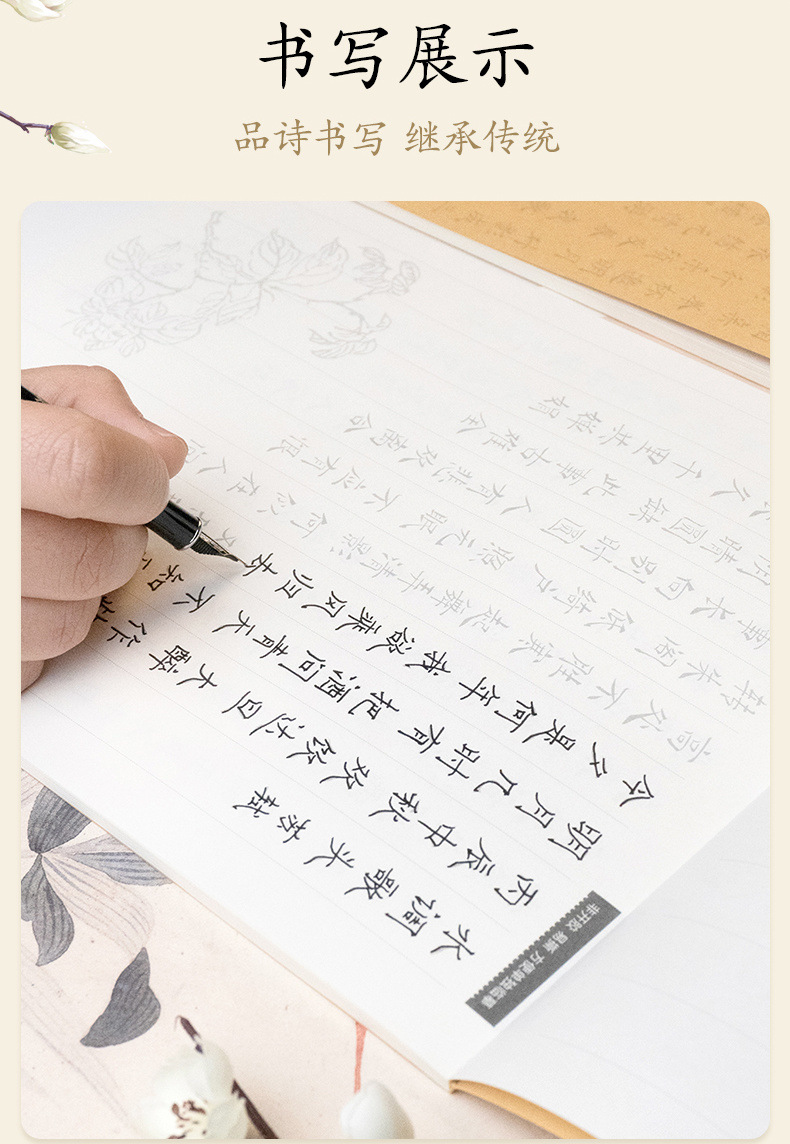 书写展示
品诗书写 继承传统
水调歌头 苏轼
丙辰中秋 欢饮达旦 大醉 作
明月几时有 把酒问青天 不知
今夕是何年 我欲乘风归去 又
高处不胜寒 起舞弄清影 何似在人
转朱阁 低绮户 照无眠 不应有恨
事长向别时圆 人有悲欢离合
阴晴圆缺 此事古难全
久 千里共婵娟
非开胶 易撕 方便单独临摹